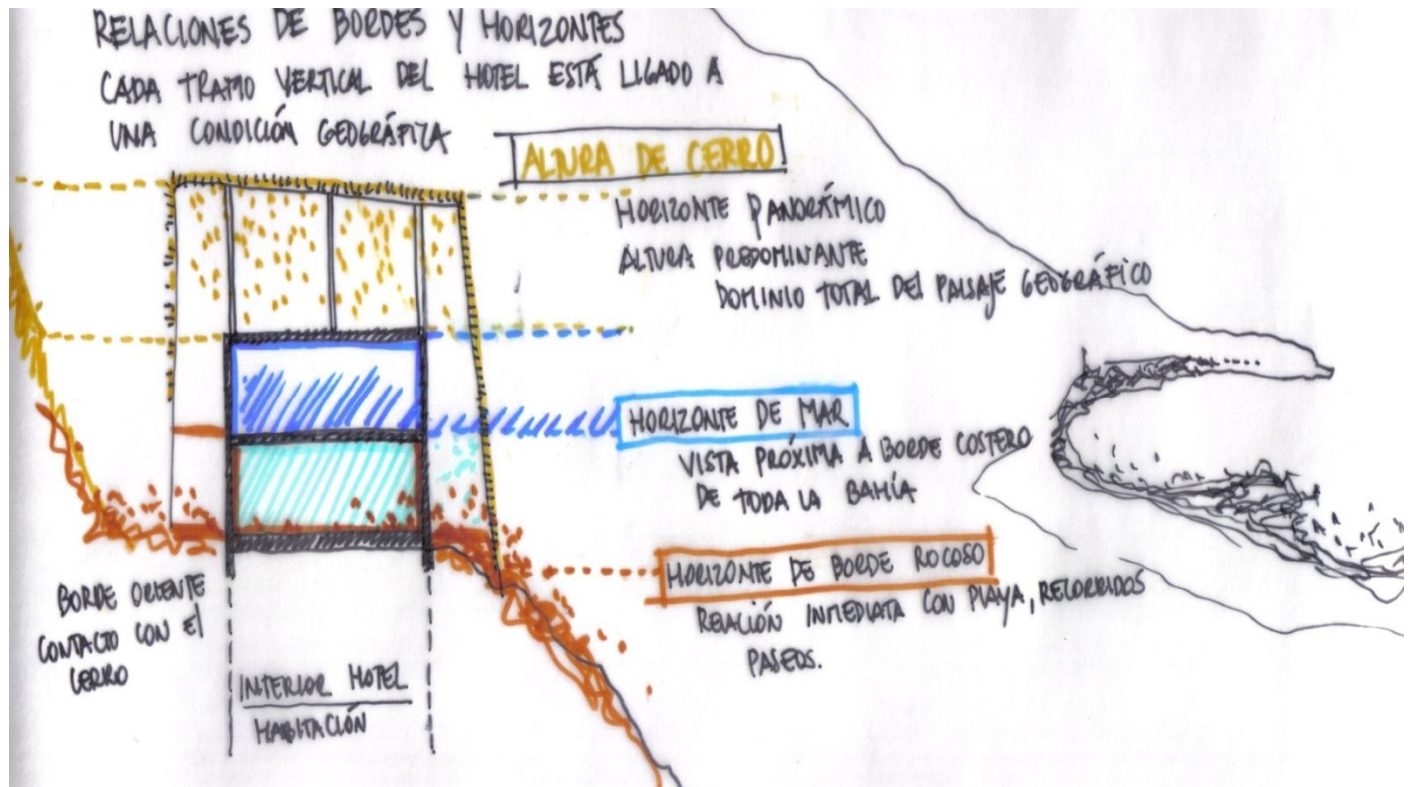 RELACIONES DE BORDES Y HORIZONTES
CADA TRAMO VERTICAL DEL HOTEL ESTÁ LIGADO A
UNA CONDICIÓN GEOGRÁFICA
ALTURA DE CERRO
HORIZONTE PANORÁMICO
ALTURA PREDOMINANTE
DOMINIO TOTAL DEL PAISAJE GEOGRÁFICO
HORIZONTE DE MAR
VISTA PRÓXIMA A BORDE COSTERO
DE TODA LA BAHÍA
HORIZONTE DE BORDE ROCOSO
RELACIÓN INMEDIATA CON PLAYA, RECORRIDOS
PASEOS.
BORDE ORIENTE
CONTACTO CON El
CERRO
INTERIOR HOTEL
HABITACIÓN